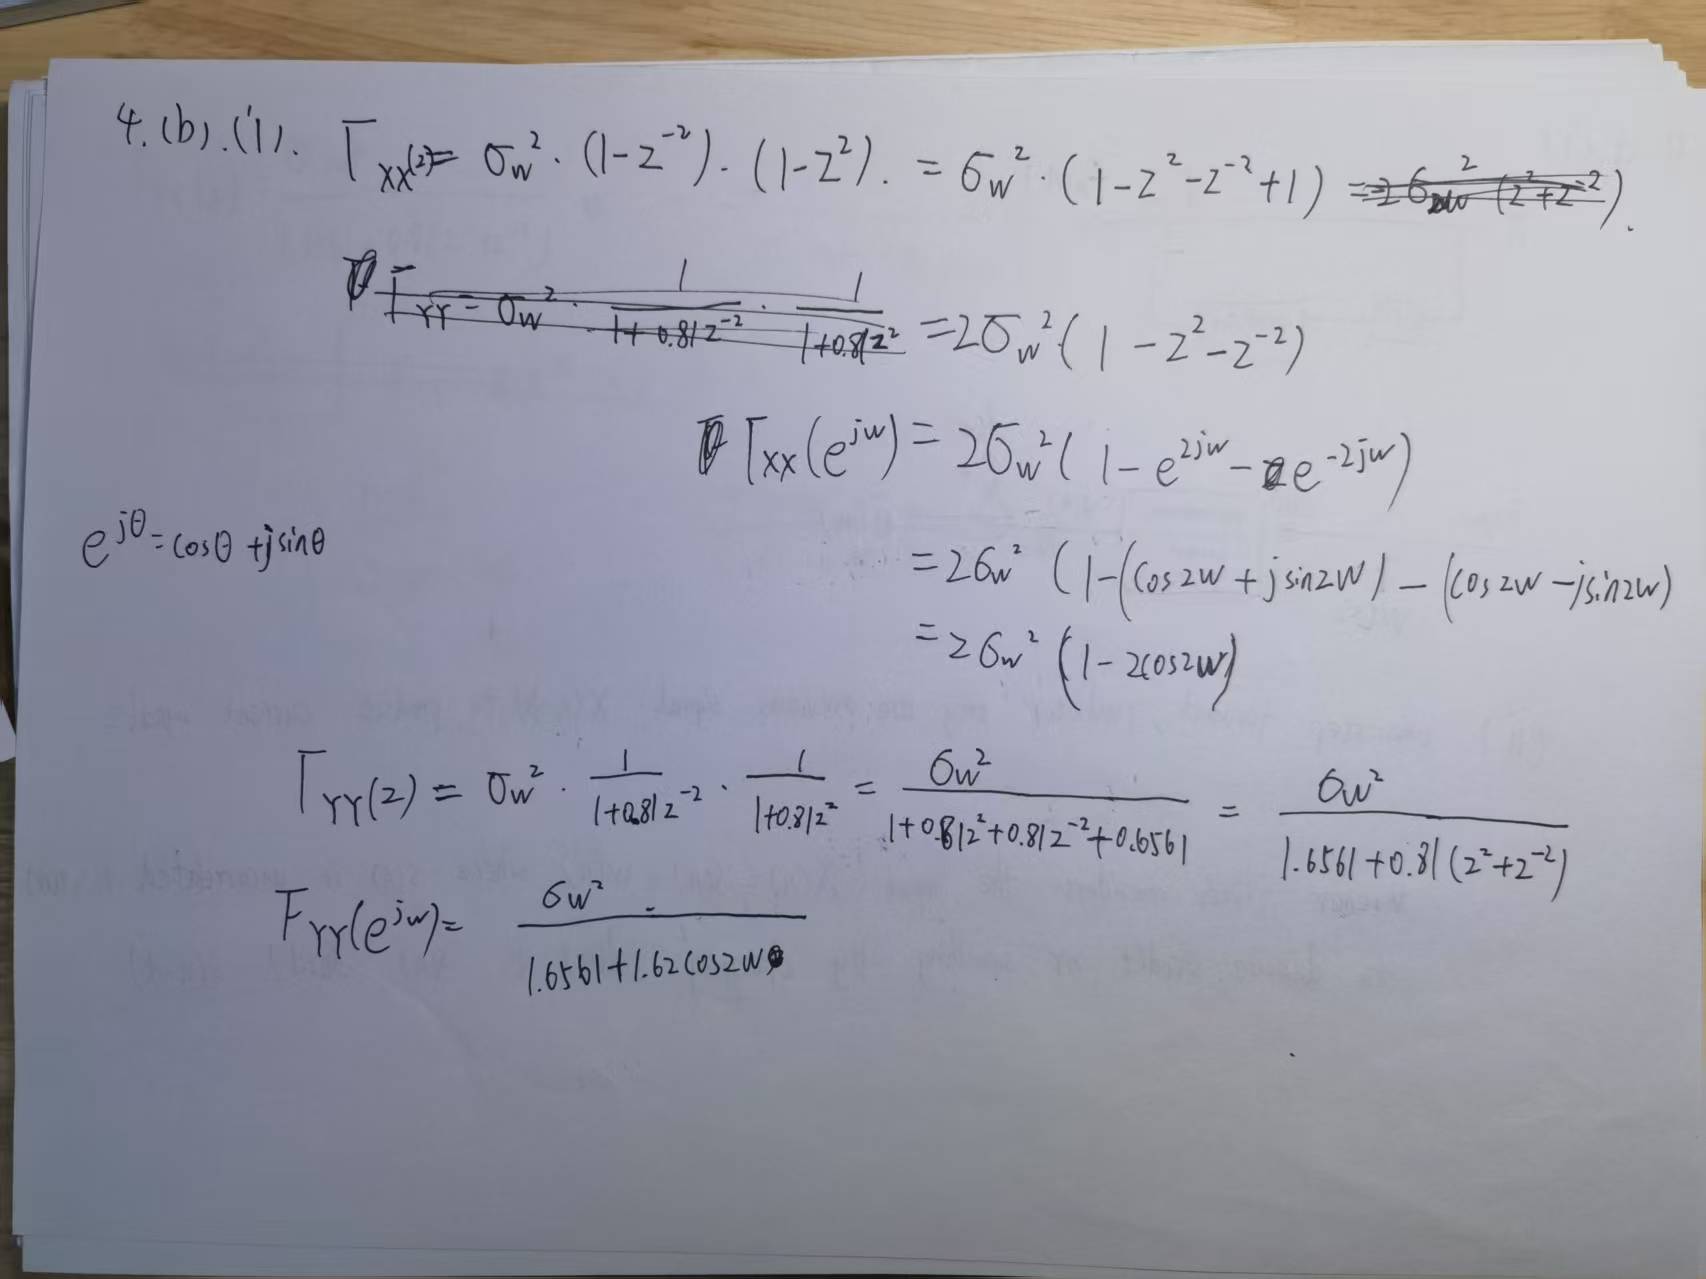 4.(b).(1). Γxx(z) = σw² · (1-z⁻²) · (1-z²). = σw² · (1-z²-z⁻²+1) = 2σw² (z²+z⁻²).
Γyy = σw² · 1/(1+0.81z⁻²) · 1/(1+0.81z²) = 2σw² (1-z²-z⁻²)
Γxx(e^jw) = 2σw² (1-e^2jw - e^-2jw)
e^jθ = cosθ + jsinθ
= 2σw² (1-(cos2w + jsin2w) - (cos2w - jsin2w)
= 2σw² (1-2cos2w)
Γyy(z) = σw² · 1/(1+0.81z⁻²) · 1/(1+0.81z²) = σw²/(1+0.81z²+0.81z⁻²+0.6561) = σw²/(1.6561+0.81(z²+z⁻²)
Γyy(e^jw) = σw²/(1.6561+1.62cos2w)